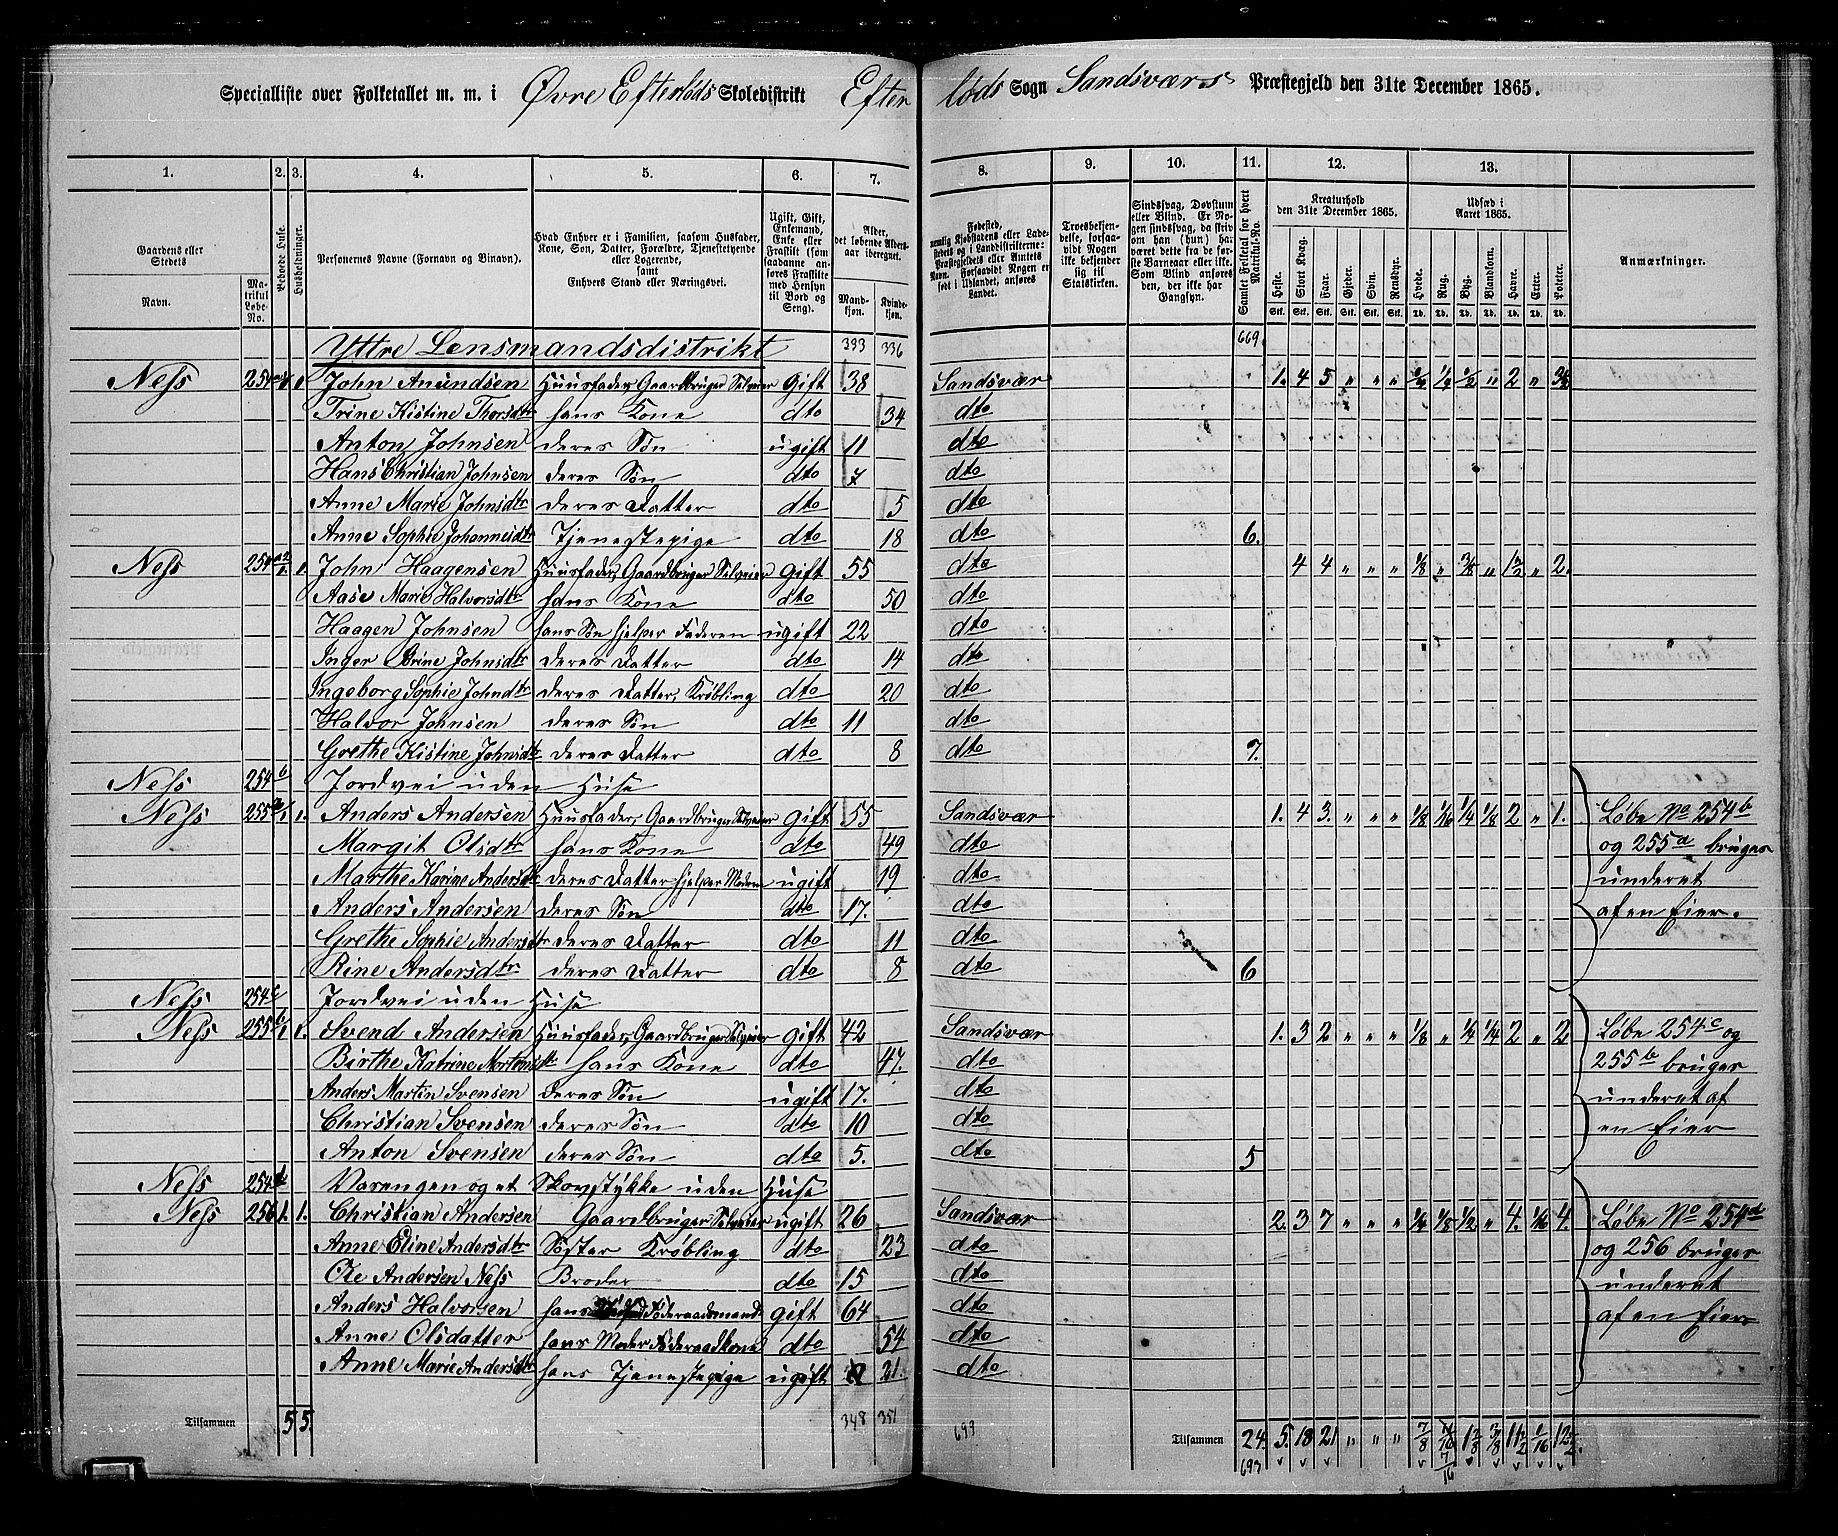 Specialliste over Folketallet m. m. i Øvre Efterløds Skoledistrikt Efterløds Sogn Sandsværs Præstegjeld den 31te December 1865.
1. 2. 3. 4. 5. 6. 7. 8. 9. 10. 11. 12. 13.
Gaardens eller Stedets Navn. Matrikul Løbe-No. Beboede Huse. Husholdninger. Personernes Navne (Fornavn og Binavn). Hvad Enhver er i Familien, saasom Husfader, Kone, Søn, Datter, Forældre, Tjenestetyende eller Logerende, samt Enhvers Stand eller Næringsvei. Ugift, Gift, Enkemand, Enke eller Fraskilt (som saadanne anføres Fraskilte med Hensyn til Bord og Seng). Alder, det løbende Alders-aar iberegnet. Mandkjøn. Kvindekjøn.
Fødested, nemlig Kjøbstadens eller Ladestedets og i Landdistrikterne: Præstegjeldets eller Amtets Navn. Forsaavidt Nogen er født i Udlandet, anføres Landet. Troesbekjendelse, forsaavidt Nogen ikke bekjender sig til Statskirken. Sindssvag, Døvstum eller Blind. Er Nogen sindssvag, da skriv om han (hun) har været dette fra de første Barneaar eller ikke. Som Blind anføres den, der ikke har Gangsyn. Samlet Folketal for hvert Matrikul-No. Kreaturhold den 31te December 1865. Udsæd i Aaret 1865. Anmærkninger.
Heste. Stort Kvæg. Faar. Gjeder. Svin. Rensdyr. Hvede. Rug. Byg. Blandkorn. Havre. Erter. Poteter.
Stk. Stk. Stk. Stk. Stk. Stk. Td. Td. Td. Td. Td. Td. Td.
Yttre Lensmandsdistrikt 333 336 669.
Ness 254 1. John Amundsen Huusfader, Gaardbruger Selveier Gift 38 Sandsvær 1. 4 5 " " " ½ ½ " 2 "
Trine Kistine Thorsdtr hans Kone dto 34 dto
Anton Johnsen deres Søn ugift 11 dto
Hans Christian Johnsen deres Søn dto 7 dto
Anne Marie Johnsdtr deres Datter dto 5 dto
Anne Sophie Johannesdtr Tjenestepige dto 18 dto 6.
Ness 254 1. John Haagensen Huusfader, Gaardbruger Selveier Gift 55 dto 4 4 " " " 1/8 " 3/8 " 1½ " 2.
Aase Marie Halvorsdtr hans Kone dto 50 dto
Haagen Johnsen hans Søn hjelper Faderen ugift 22 dto
Inger Trine Johnsdtr deres Datter dto 14 dto
Ingeborg Sophie Johndtr deres Datter, Krøbling dto 20 dto
Halvor Johnsen deres Søn dto 11 dto
Grethe Kistine Johnsdtr deres Datter dto 8 dto 7.
Ness 254b Jordvei uden Huse
Ness 255a 1 1. Anders Andersen Huusfader, Gaardbruger Selveier gift 55 Sandsvær 1. 4 3. " " " 1/8 1/16 1/4 1/8 2 " 1. Løbe No 254b
Margit Olsdtr hans Kone dto 49 dto og 255a bruges
Marthe Karine Andersdtr deres Datter hjelper Moderen ugift 19 dto underet
Anders Andersen deres Søn dto 17. dto af en Eier.
Grethe Sophie Andersdtr deres Datter dto 11 dto
Rine Andersdtr deres Datter dto 8 dto 6
Ness 254c Jordvei uden Huse
Ness 255b 1 1. Svend Andersen Huusfader, Gaardbruger Selveier gift 42 Sandsvær 1. 3 2 " " " 1/8 " 1/4 1/4 2 " 2 Løbe 254c og
Birthe Katrine Mortensdtr hans Kone dto 47. dto 255b bruges
Anders Martin Svensen deres Søn ugift 17. dto underet af
Christian Svensen deres Søn dto 10 dto en Eier
Anton Svensen deres Søn dto 5. dto 5
Ness 254d Varengen og et Skovstykke uden Huse
Ness 256 1. 1. Christian Andersen Gaardbruger Selveier ugift 26 Sandsvær 2. 3 7 " " " 1/8 1/2 " 4. 1/16 4. Løbe No 254d
Anne Eline Andersdtr Søster Krøbling dto 23 dto og 256 bruges
Ole Andersen Ness Broder dto 15 dto underet
Anders Halvorsen hans Føderaadsmand gift 64 dto af en Eier
Anne Olsdatter hans Moder Føderaadkone dto 54 dto
Anne Marie Andersdtr hans Tjenestepige ugift 21. dto
Tilsammen 5 5. 348 351 699 Tilsammen 24. 5. 18 21 " " " 7/8 7/16 3/8 11½ 1/16
693